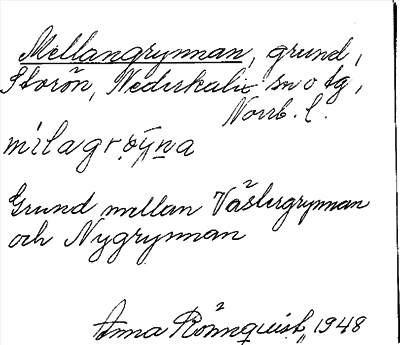 Mellangrynnan, grund,
Storön, Nederkalix sn o tg,
Norrb. l.
milagrøyna
Grund mellan Västergrynnan
och Nygrynnan
Anna Rönnquist, 1948